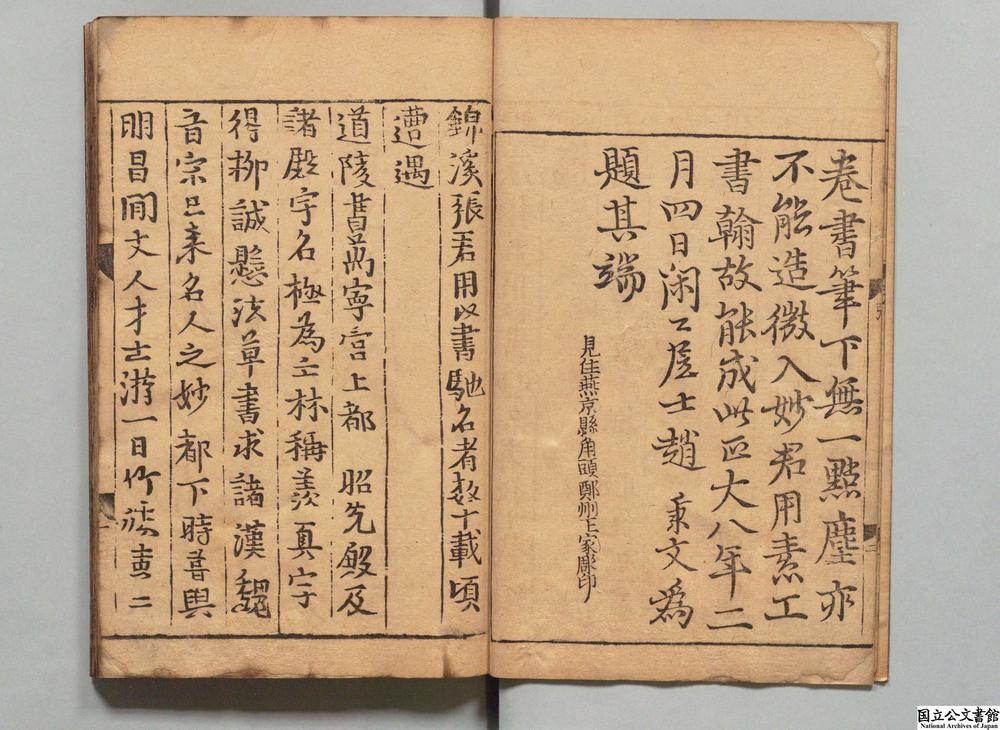 卷書筆下無一點塵亦
不能造微入妙君用素工
書翰故能成此正大八年二
月四日閑〻居士趙 秉文為
題其端
見住燕京縣角頭鄭州王家彫印
錦溪張君用以書馳名者數十載頃
遭遇
道陵書萬寧宮上都 昭先殿及
諸殿字名極為士林稱羡真字
得柳誠懸法草書求諸漢魏
音宗已来名人之妙都下時普與
明昌間文人才士游一日竹溪
国立公文書館
National Archives of Japan